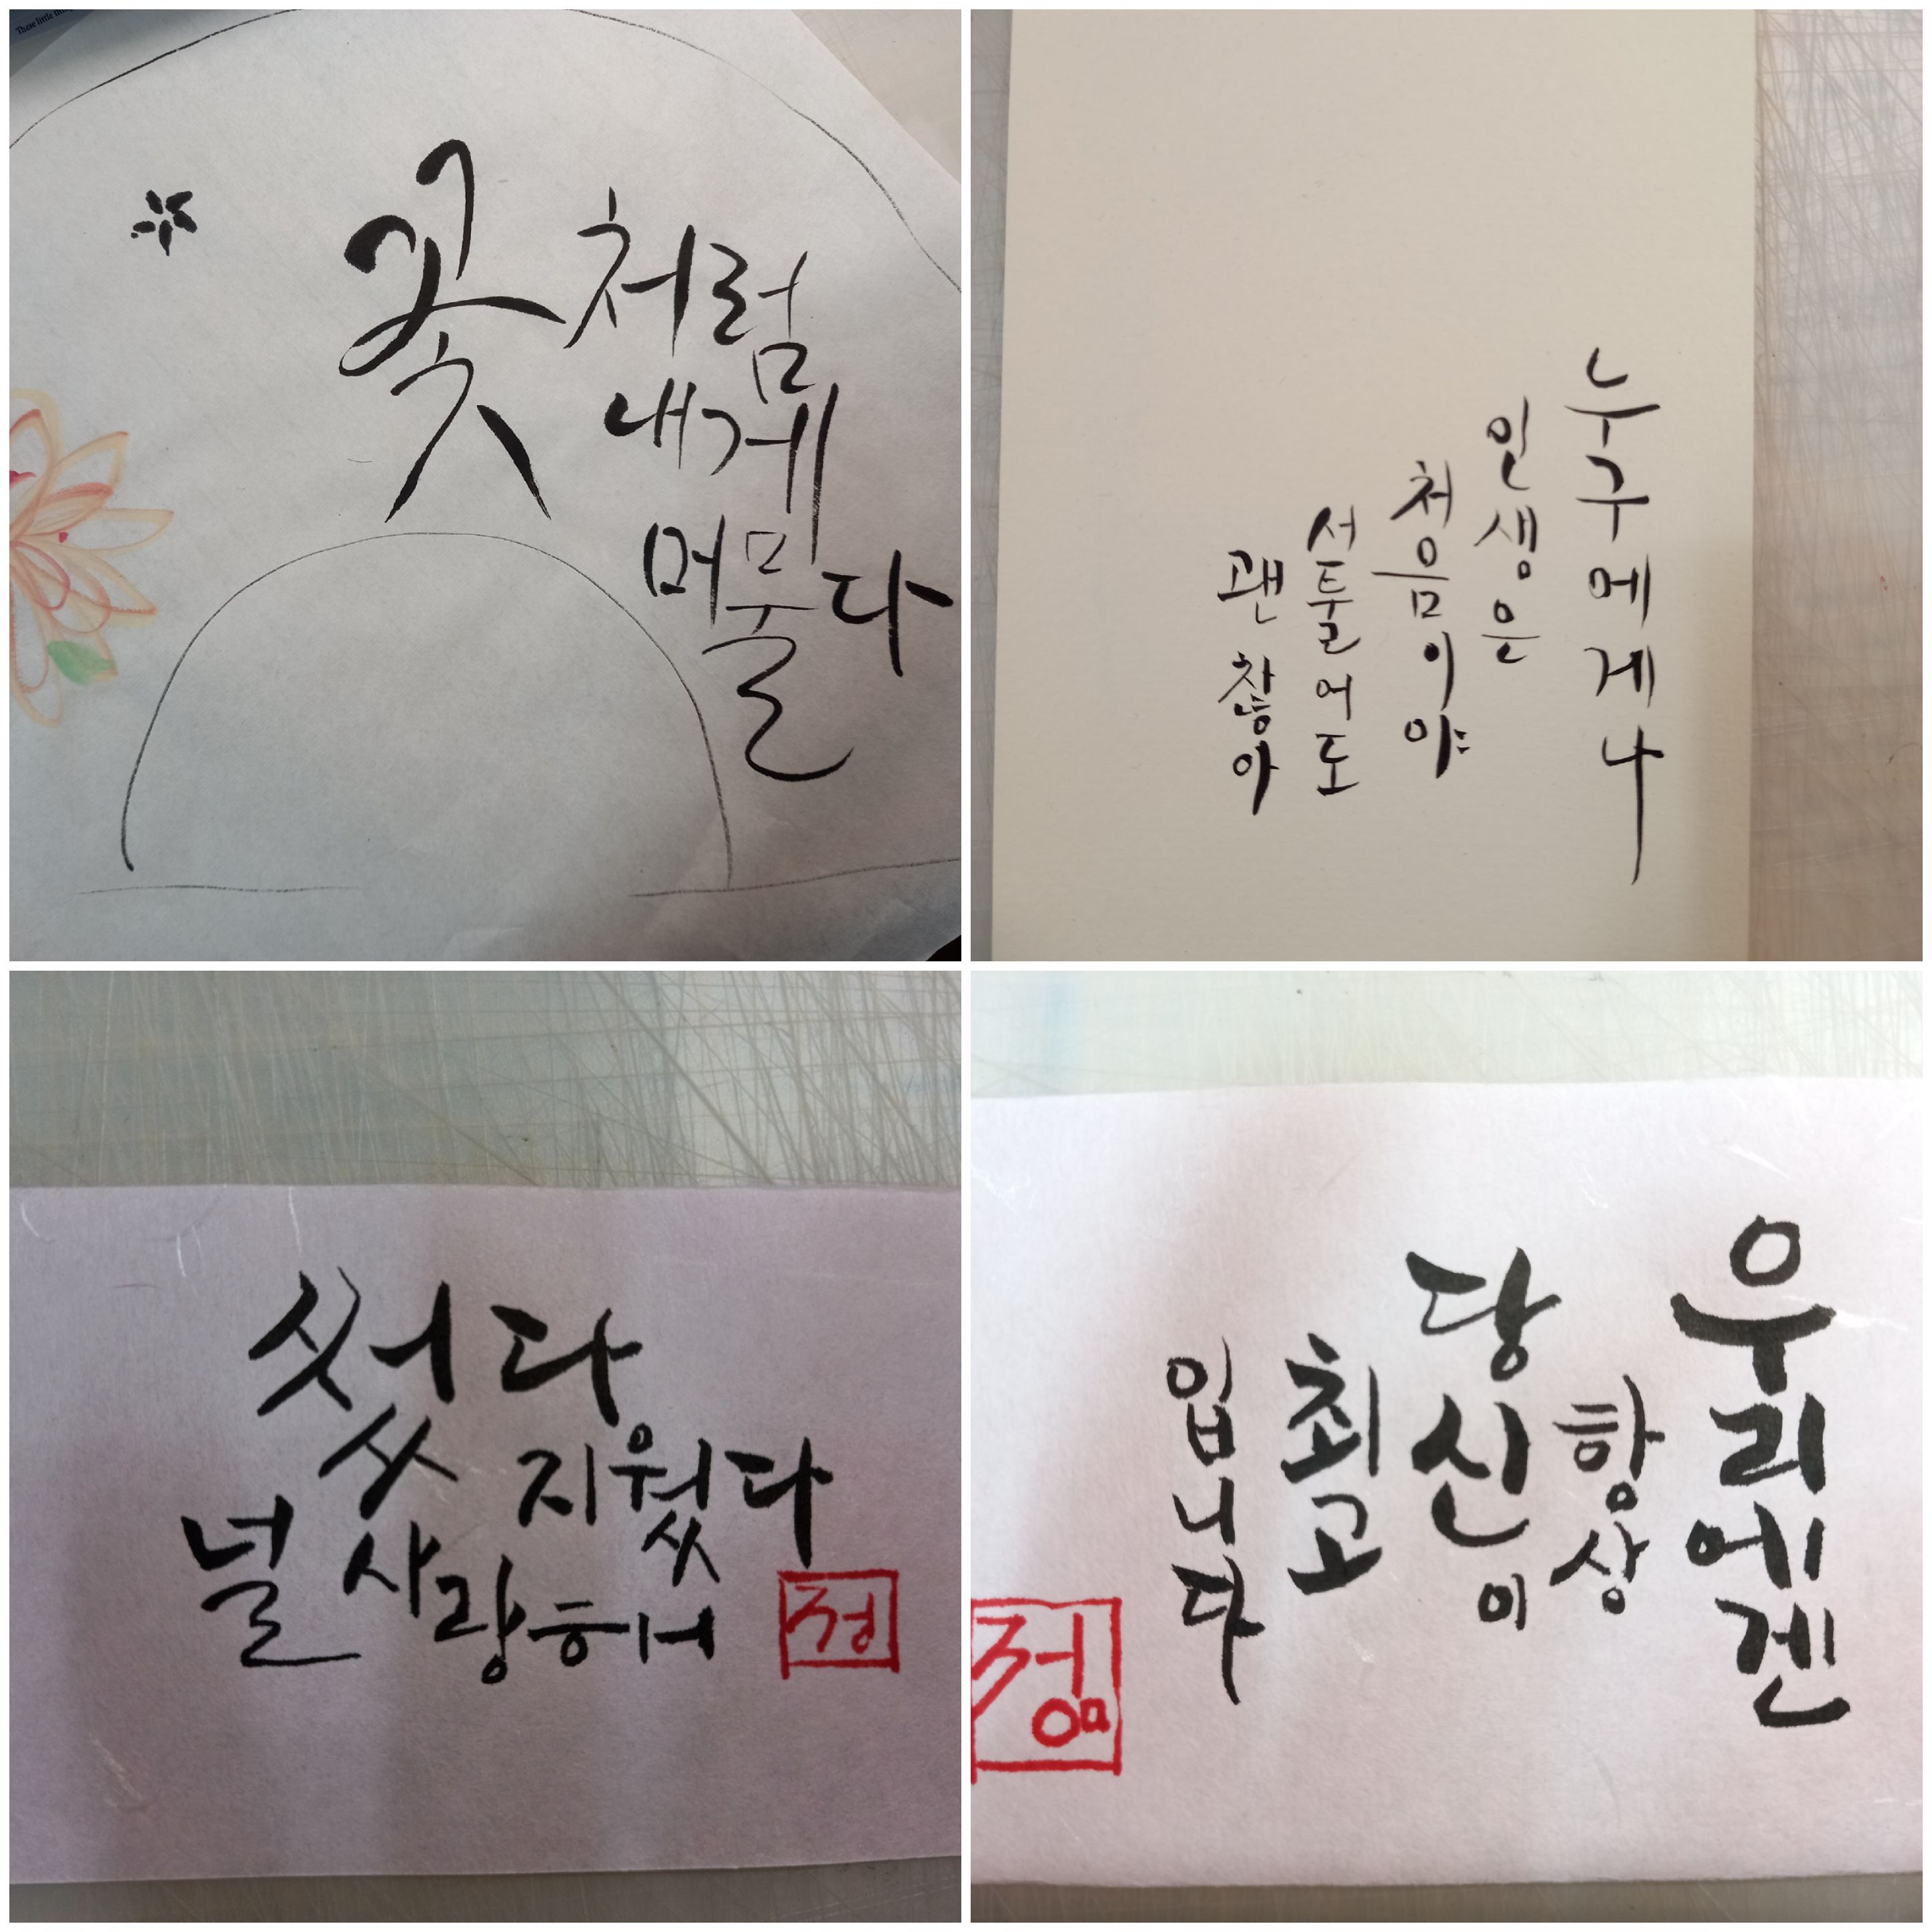 꽃처럼
내게
머물다
누구에게나
인생은
처음이야
서툴어도
괜찮아
썼다
지웠다
널 사랑해
정
우리에겐
항상
당신이
최고
입니다